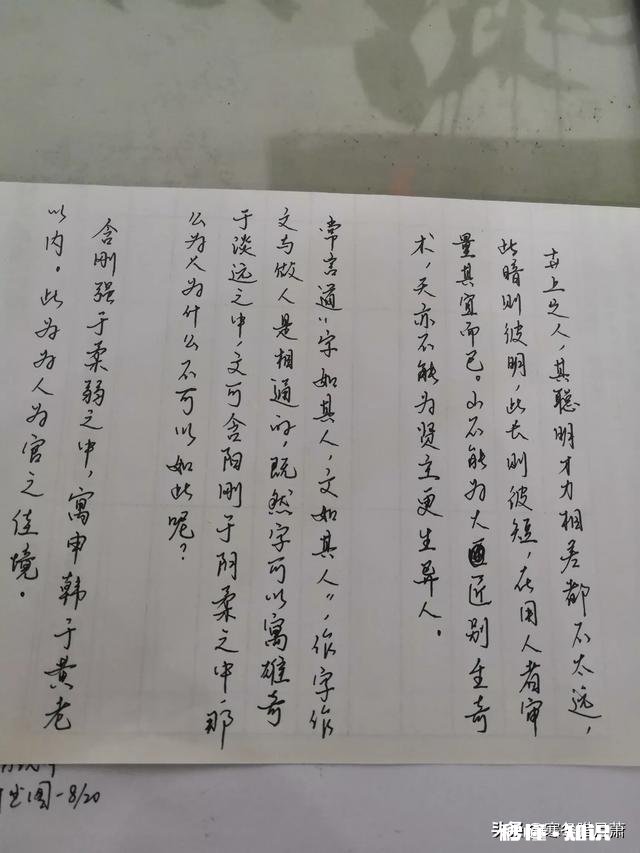 世上之人，其聪明才力相差都不太远，
此暗则彼明，此长则彼短，在用人者审
量其宜而已。山不能为大匠别生奇
术，天亦不能为贤主更生异人。
常言道“字如其人，文如其人”，作字作
文与做人是相通的，既然字可以寓雄奇
于淡远之中，文可含阳刚于阴柔之中那
么为人为什么不可以如此呢？
含刚强于柔弱之中，寓申韩于黄老
以内。此为为人为官之佳境。
图-8/20
秒懂·知识